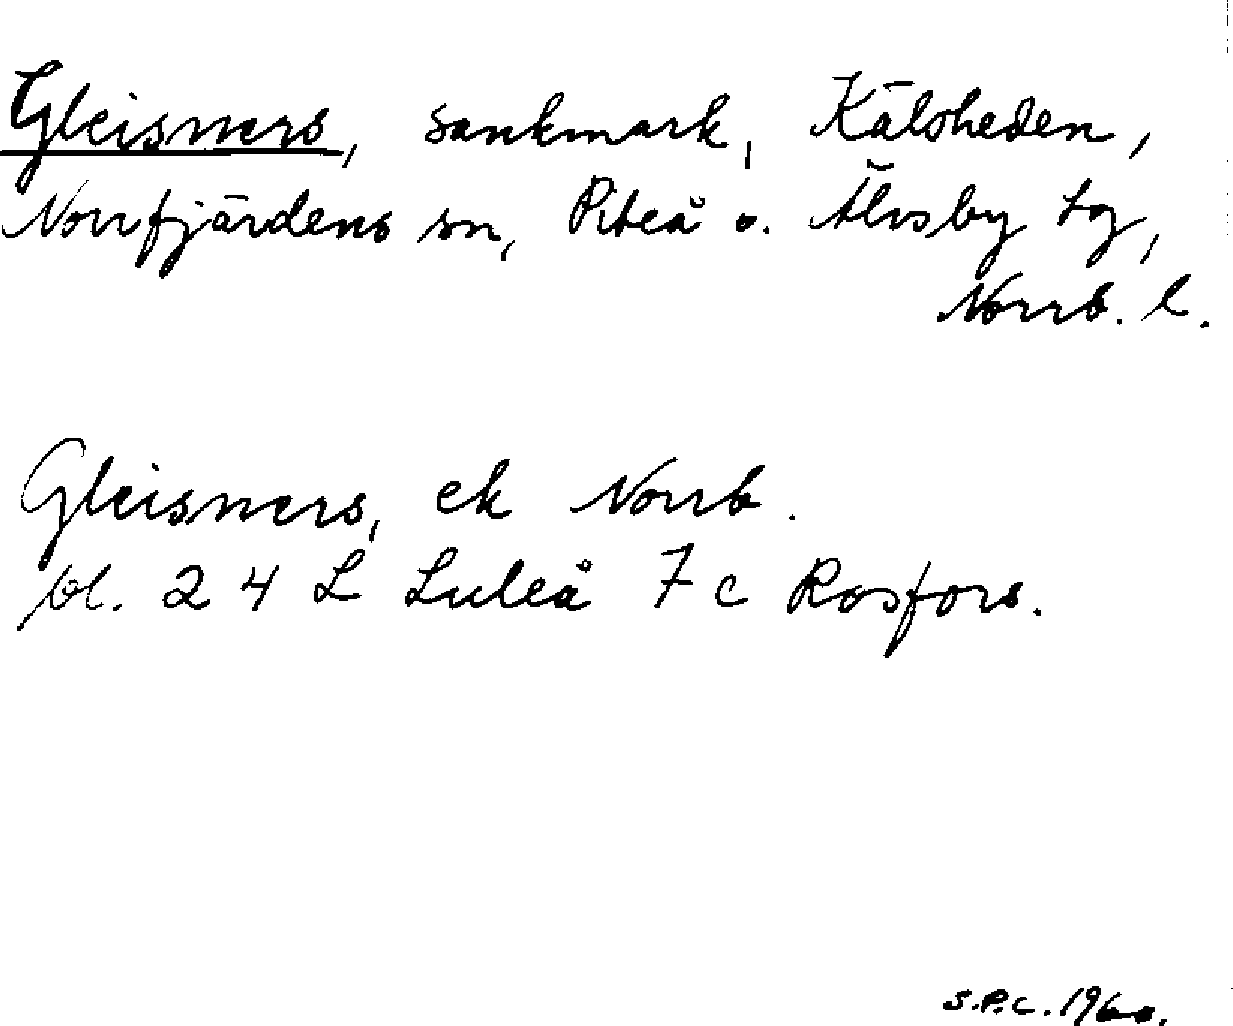 Gleisners, sankmark, Kälsheden,
Norrfjärdens sn, Piteå o. Älvsby tg,
Norrb. l.
Gleisners, ek Norrb.
bl. 24 L Luleå 7 c Rosfors.
S.P.C. 1960.